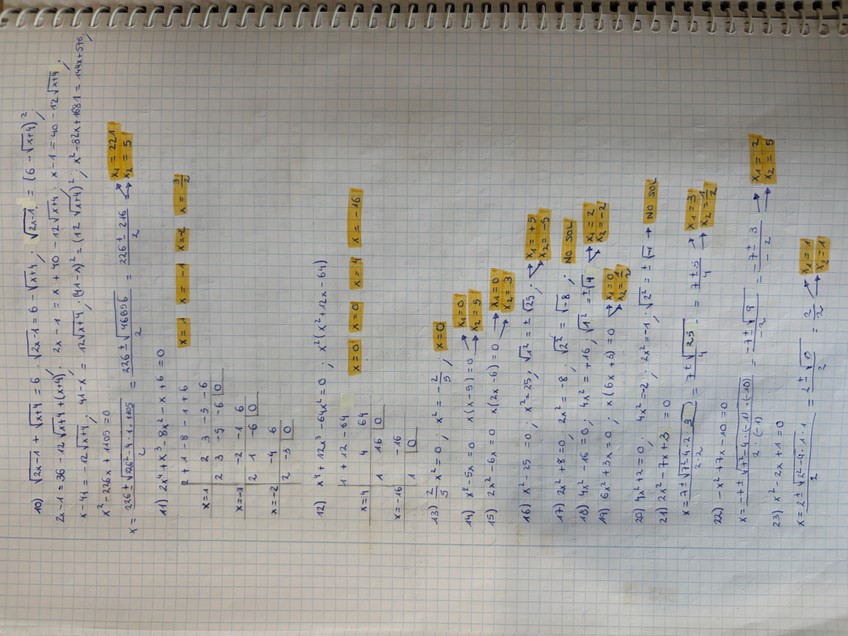 10) √2x-1 + √x+4 = 6 · √2x-1 = 6 - √x+4 ; √2x-1 = (6 - √x+4)² ;
2x-1 = 36 - 12√x+4 + (x+4) ; 2x-1 = x + 40 - 12√x+4 ; x-1 = 40 - 12√x+4 ;
x-41 = -12√x+4 ; 41-x = 12√x+4 ; (41-x)² = (12√x+4)² ; x²-82x+1681 = 144x+576 ;
x² - 226x + 1105 = 0
x = 226 ± √226² - 4·1·1105 / 2 = 226 ± √46656 / 2 = 226 ± 216 / 2 x₁ = 221 x₂ = 5
11) 2x⁴ + x³ - 8x² - x + 6 = 0
2 + 1 - 8 - 1 + 6 x = 1 x = -1 x = -2 x = 3/2
x=1 2 3 -5 -6
2 3 -5 -6 0
x=-1 -2 -1 6
2 1 -6 0
x=-2 -4 6
2 -3 0
12) x⁴ + 12x³ - 64x² = 0 ; x²(x² + 12x - 64)
1 + 12 - 64 x = 0 x = 0 x = 4 x = -16
x=4 4 64
1 16 0
x=-16 -16
1 0
13) 2/5 x² = 0 ; x² = - 2/5 ; x = 0
14) x² - 5x = 0 x(x-5) = 0 x₁ = 0 x₂ = 5
15) 2x² - 6x = 0 x(2x-6) = 0 x₁ = 0 x₂ = 3
16) x² - 25 = 0 ; x² = 25 ; √x² = ± √25 ; x₁ = +5 x₂ = -5
17) 2x² + 8 = 0 ; 2x² = -8 ; √2x² = √-8 ; NO SOL
18) 4x² - 16 = 0 ; 4x² = +16 ; √x² = ± √4 x₁ = 2 x₂ = -2
19) 6x² + 3x = 0 ; x(6x + 3) = 0 x₁ = 0
20) 4x² + 2 = 0 ; 4x² = -2 ; 2x² = -1 ; √2x² = ± √-1 NO SOL
21) 2x² - 7x + 3 = 0
x = 7 ± √7² - 4·2·3 / 2·2 = 7 ± √25 / 4 = 7 ± 5 / 4 x₁ = 3 x₂ = 1/2
22) -x² + 7x - 10 = 0
x = -7 ± √7² - 4·(-1)·(-10) / 2·(-1) = -7 ± √9 / -2 = -7 ± 3 / -2 x₁ = 2 x₂ = 5
23) x² - 2x + 1 = 0
x = 2 ± √2² - 4·1·1 / 2 = 2 ± √0 / 2 = 2/2 x₁ = 1 x₂ = 1